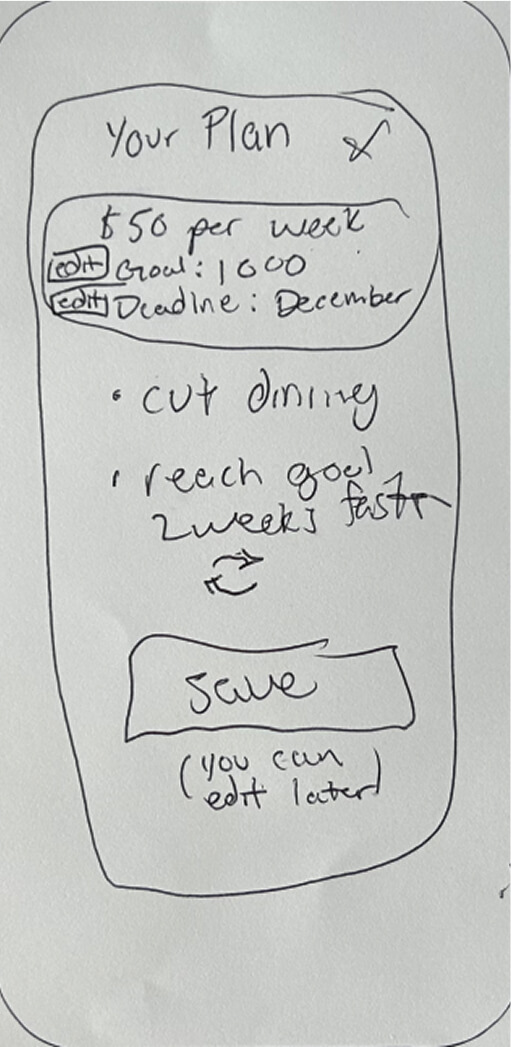 Your Plan
$50 per week
edit Goal: 1000
edit Deadline: December
• cut dining
• reach goal
2 weeks fastr
save
(you can
edit later)